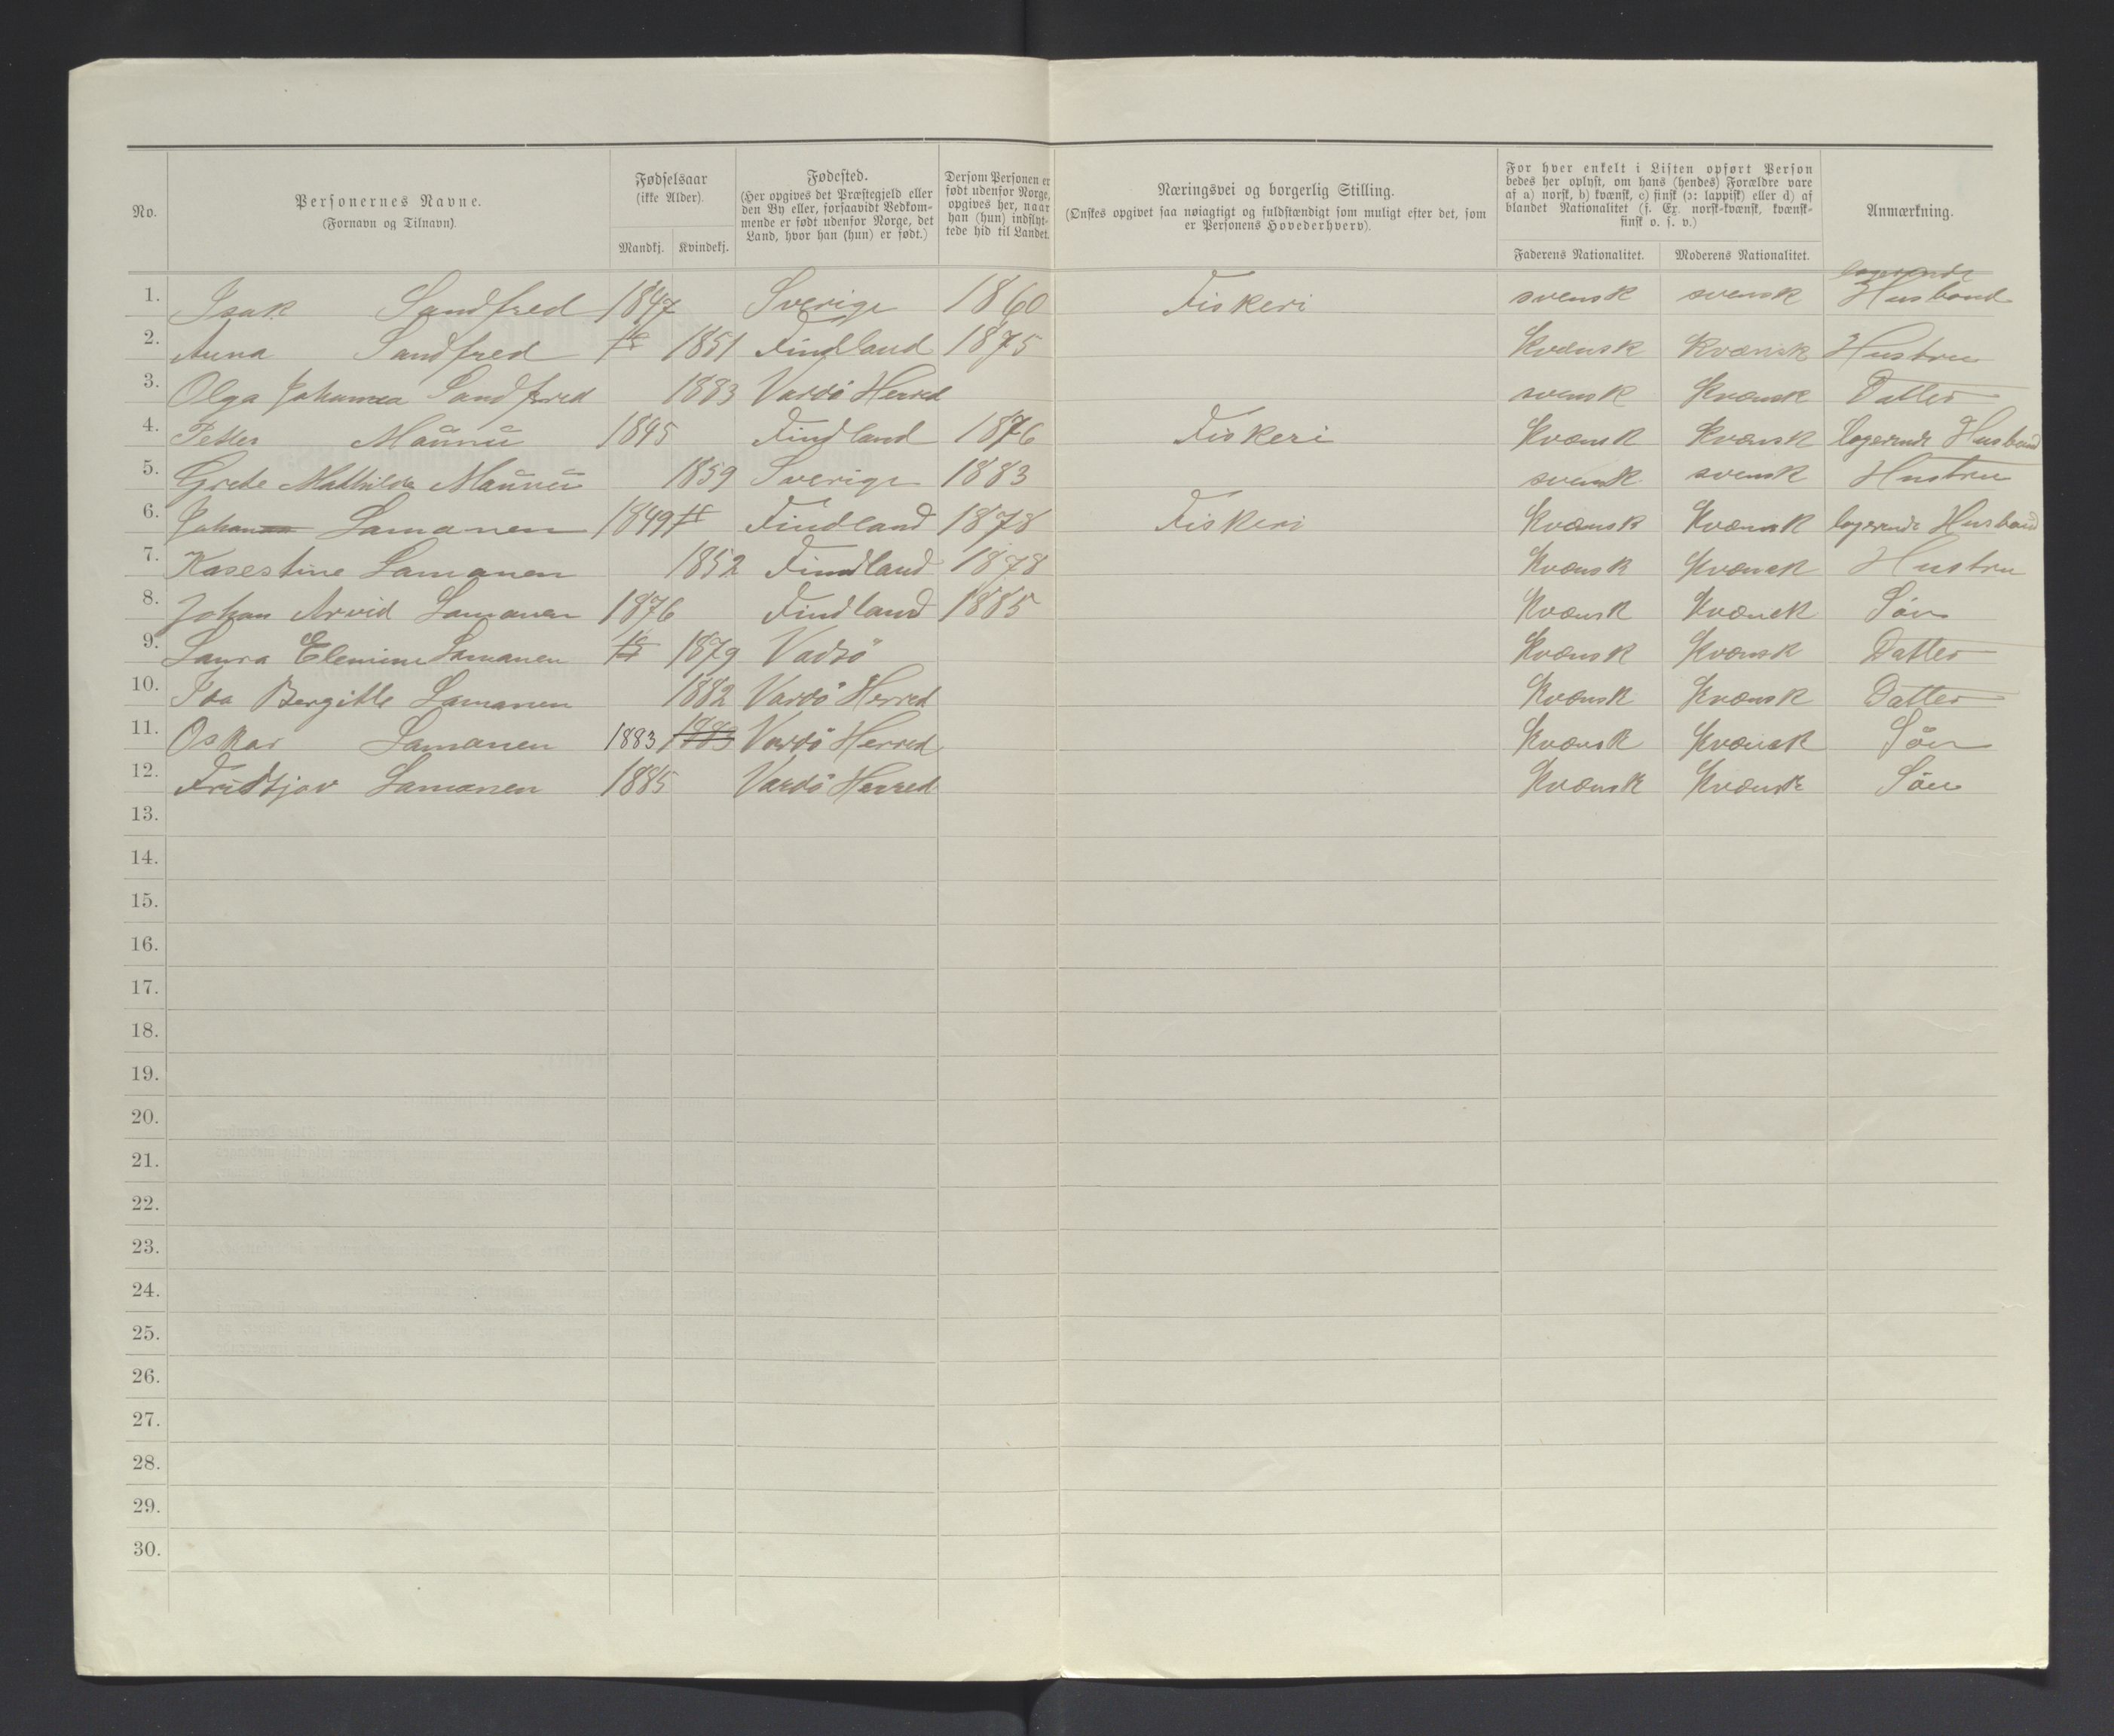 No.
Personernes Navne.
(Fornavn og Tilnavn).
Fødselsaar
(ikke Alder).
Mandkj. Kvindekj.
Fødested.
(Her opgives det Præstegjeld eller
den By eller, forsaavidt Vedkom-
mende er født udenfor Norge, det
Land, hvor han (hun) er født.)
Dersom Personen er
født udenfor Norge,
opgives her, naar
han (hun) indflyt-
tede hid til Landet.
Næringsvei og borgerlig Stilling.
(Ønskes opgivet saa nøiagtigt og fuldstændigt som muligt efter det, som
er Personens Hovederhverv).
For hver enkelt i Listen opført Person
bedes her oplyst, om hans (hendes) Forældre vare
af a) norsk, b) kvænsk, c) finsk (ɔ: lappisk) eller d) af
blandet Nationalitet (f. Ex. norsk-kvænsk, kvænsk-
finsk o. s. v.)
Faderens Nationalitet. Moderens Nationalitet.
Anmærkning.
logerende
1. Isak Sandfred 1847 Sverige 1860 Fiskeri svensk svensk Husbond
2. Anna Sandfred 1851 Findland 1875 Kvænsk Kvænsk Hustru
3. Olga Johanna Sandfred 1883 Vardö Herred svensk Kvænsk Datter
4. Petter Maunu 1845 Findland 1876 Fiskeri Kvænsk Kvænsk logerende Husbond
5. Grete Mathilde Maunu 1859 Sverige 1883 svensk svensk Hustru
6. Johan Lamanen 1849 Findland 1878 Fiskeri Kvænsk Kvænsk logerende Husbond
7. Kasestine Lamanen 1852 Findland 1878 Kvænsk Kvænsk Hustru
8. Johan Arvid Lamanen 1876 Findland 1885 Kvænsk Kvænsk Sön
9. Laura Lamanen 1879 Vadsö Kvænsk Kvænsk Datter
10. Ida Bergitte Lamanen 1882 Vardö Herred Kvænsk Kvænsk Datter
11. Oskar Lamanen 1883 1883 Vardö Herred Kvænsk Kvænsk Sön
12. Fridtjov Lamanen 1885 Vardö Herred Kvænsk Kvænsk Sön
13.
14.
15.
16.
17.
18.
19.
20.
21.
22.
23.
24.
25.
26.
27.
28.
29.
30.